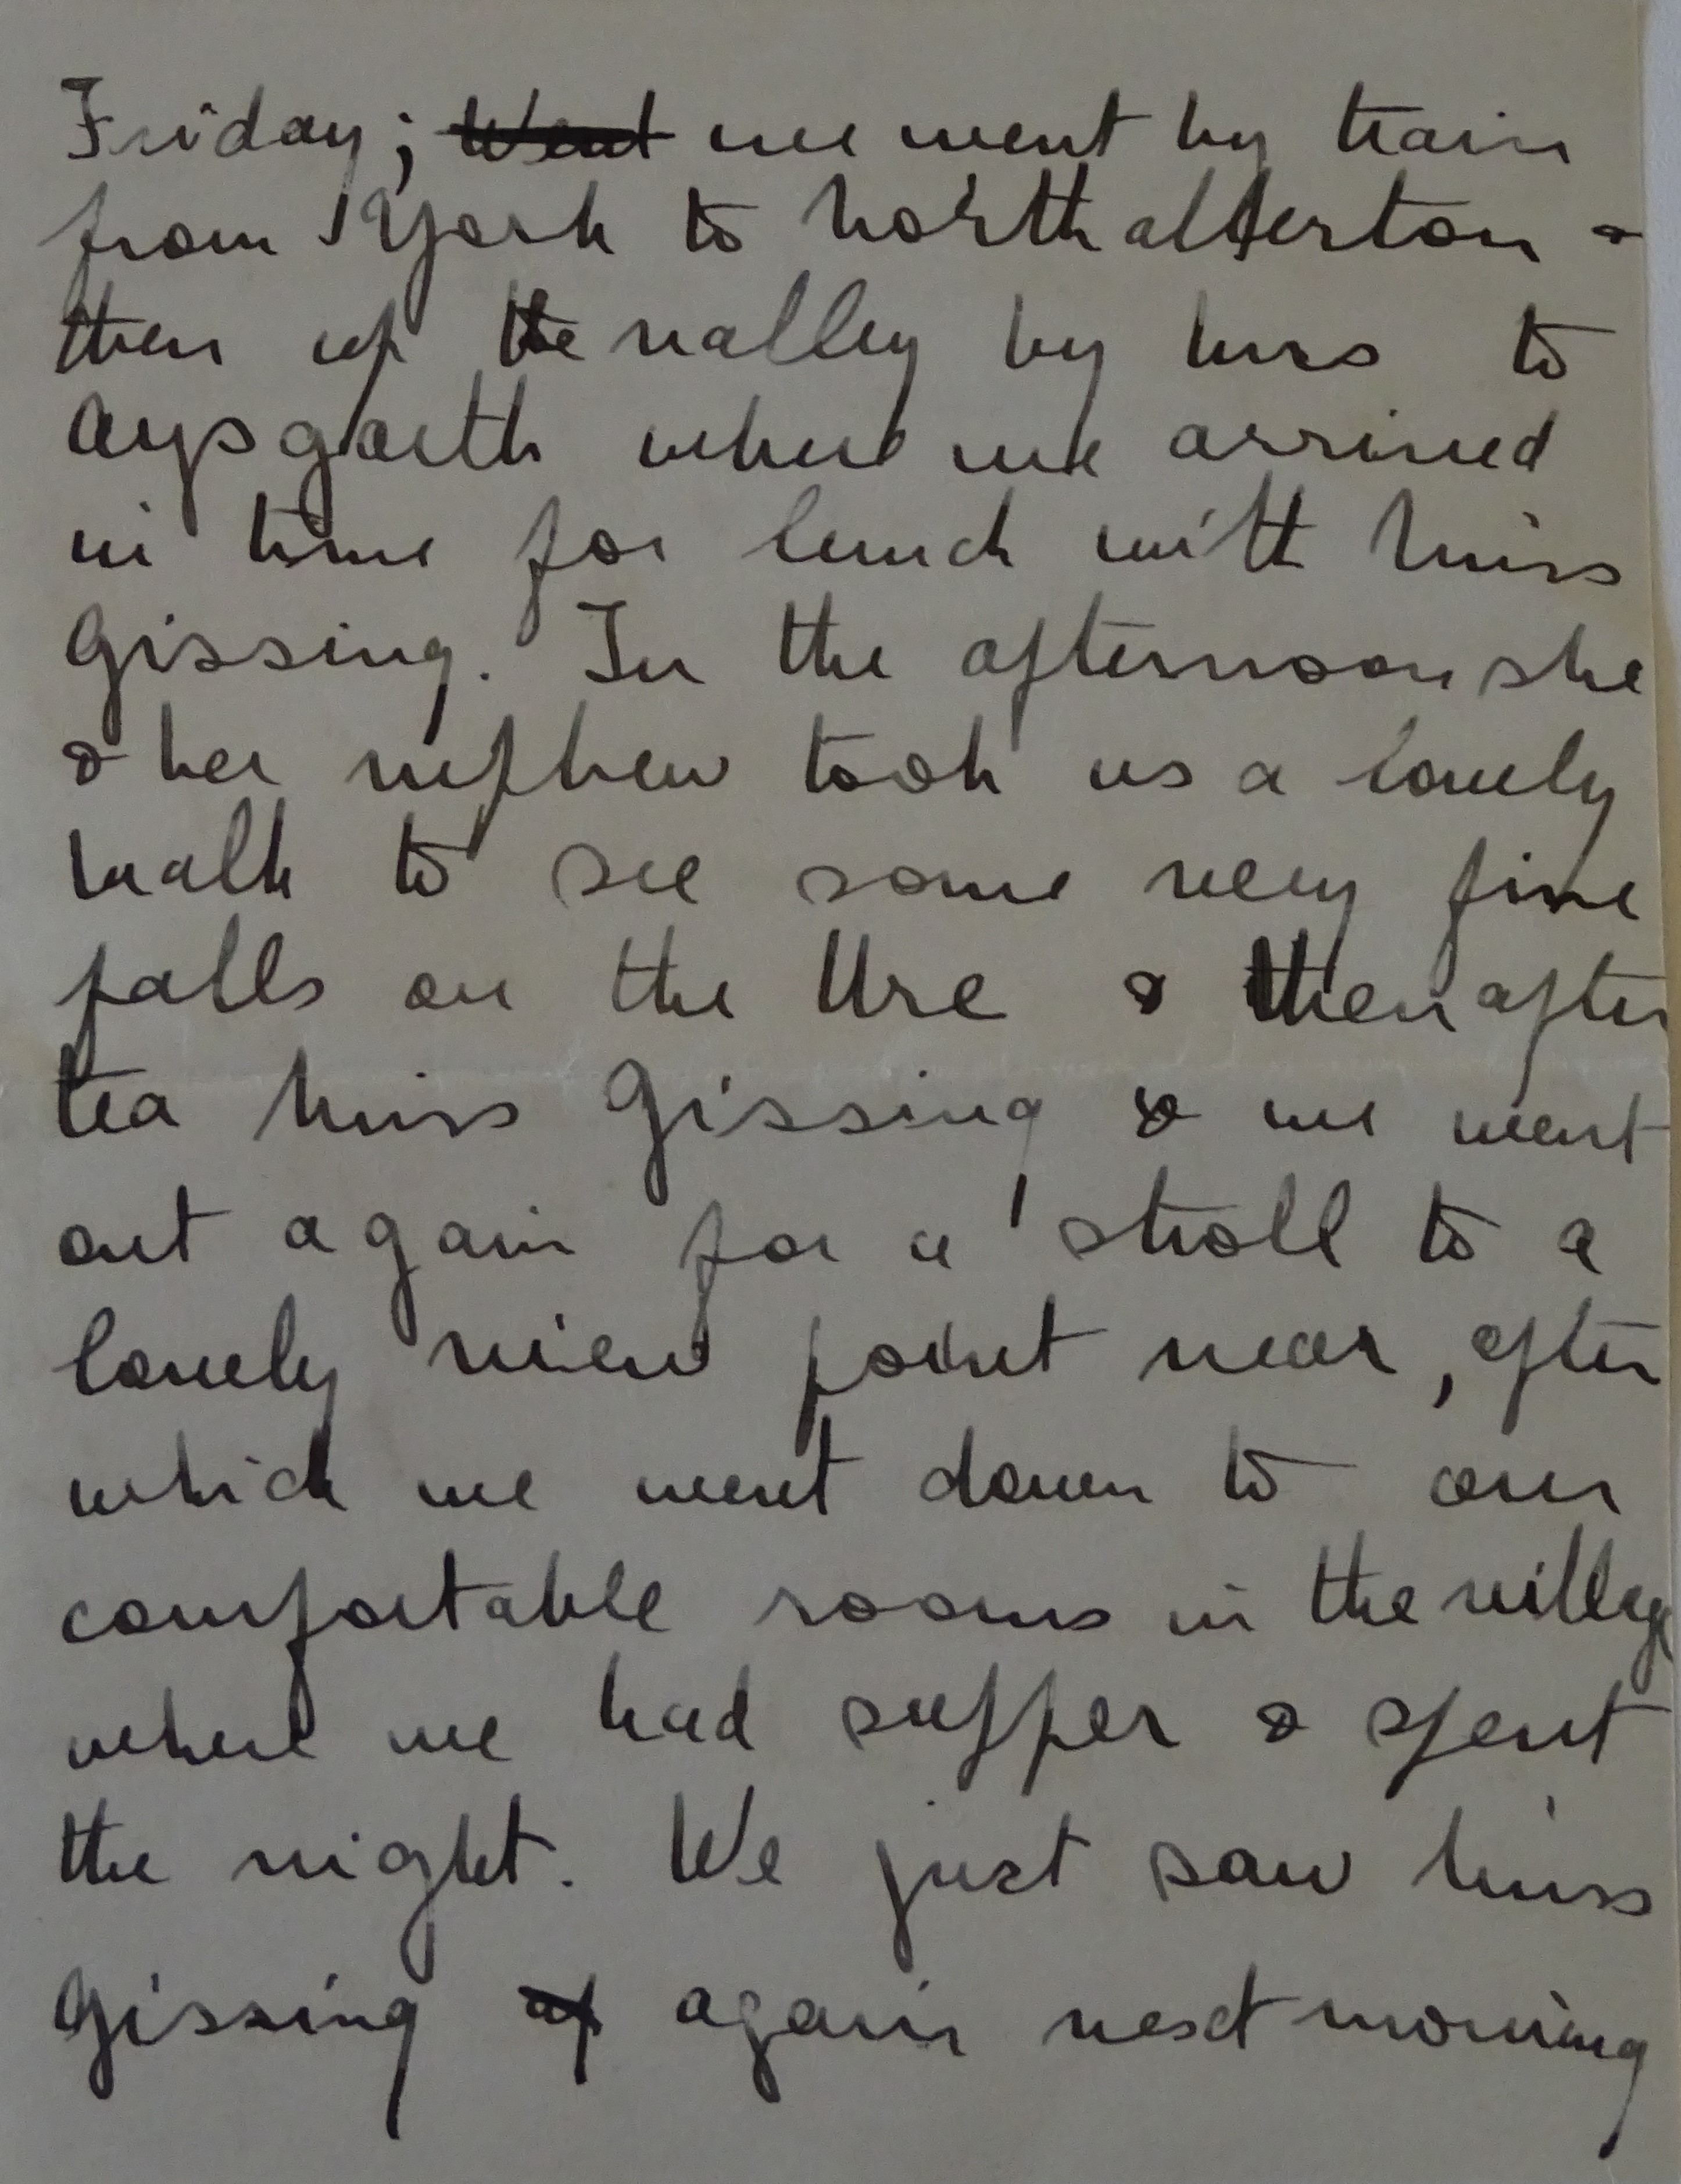 Friday; ~~Went~~ we went by train
from York to Northallerton &
then up the valley by bus to
Aysgarth where we arrived
in time for lunch with Miss
Gissing. In the afternoon she
& her nephew took us a lovely
walk to see some very fine
falls on the Ure & then after
tea Miss Gissing & we went
out again for a stroll to a
lovely view point near, after
which we went down to our
comfortable rooms in the village
where we had supper & spent
the night. We just saw Miss
Gissing ~~af~~ again next morning